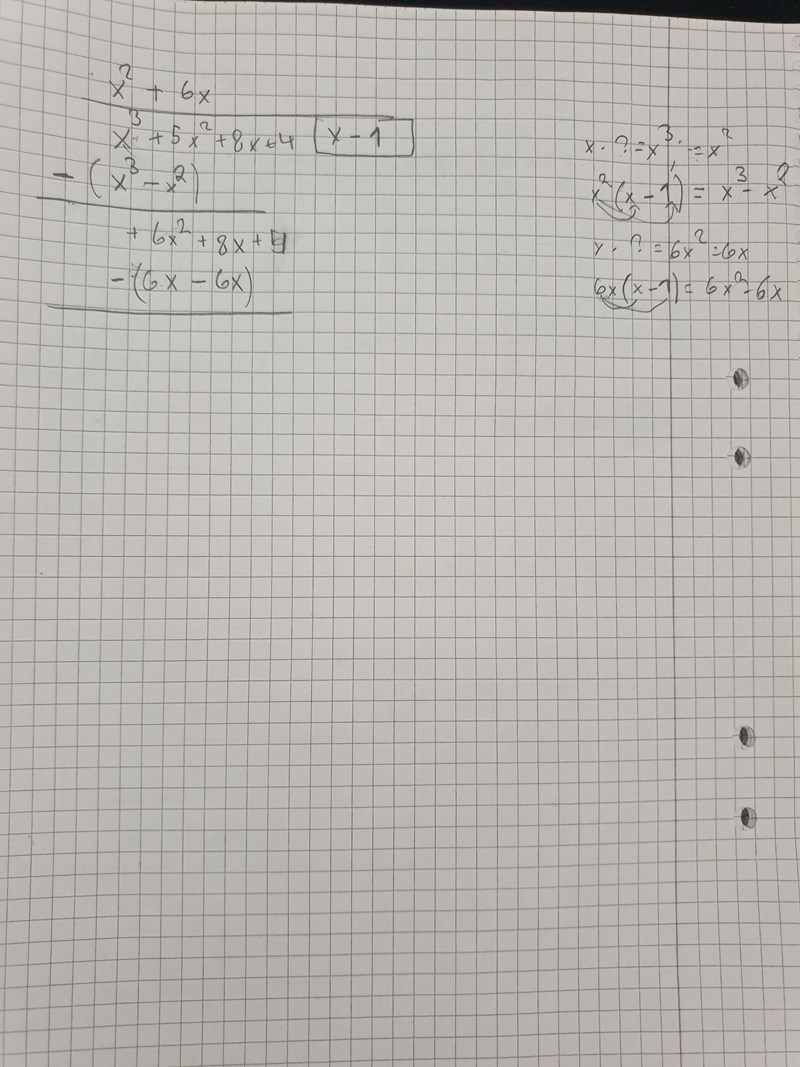 x² + 6x
x³ + 5x² + 8x + 4 x - 1
- (x³ - x²)
+ 6x² + 8x + 4
- (6x - 6x)
x · ? = x³ ; = x²
x²(x - 1) = x³ - x²
x · ? = 6x² = 6x
6x(x - 1) = 6x² - 6x